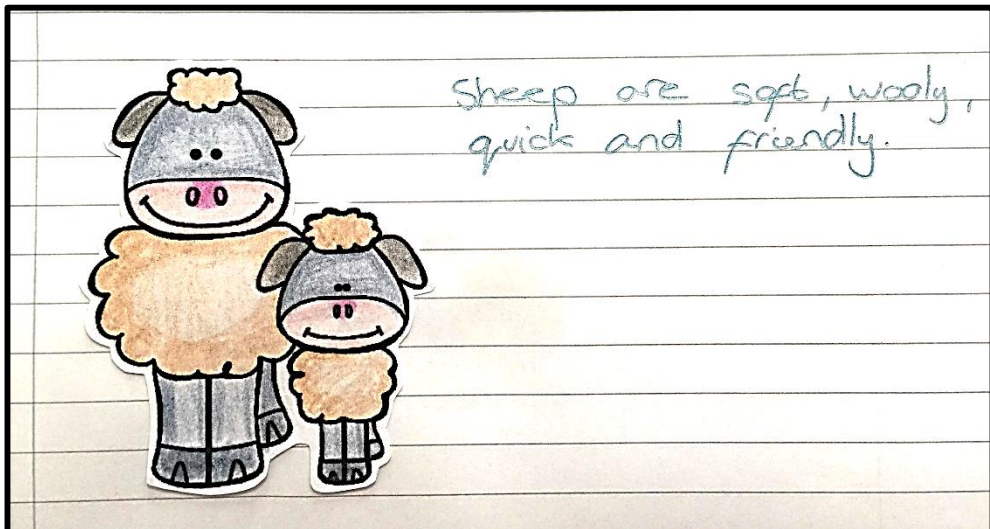 Sheep are soft, wooly,
quick and friendly.